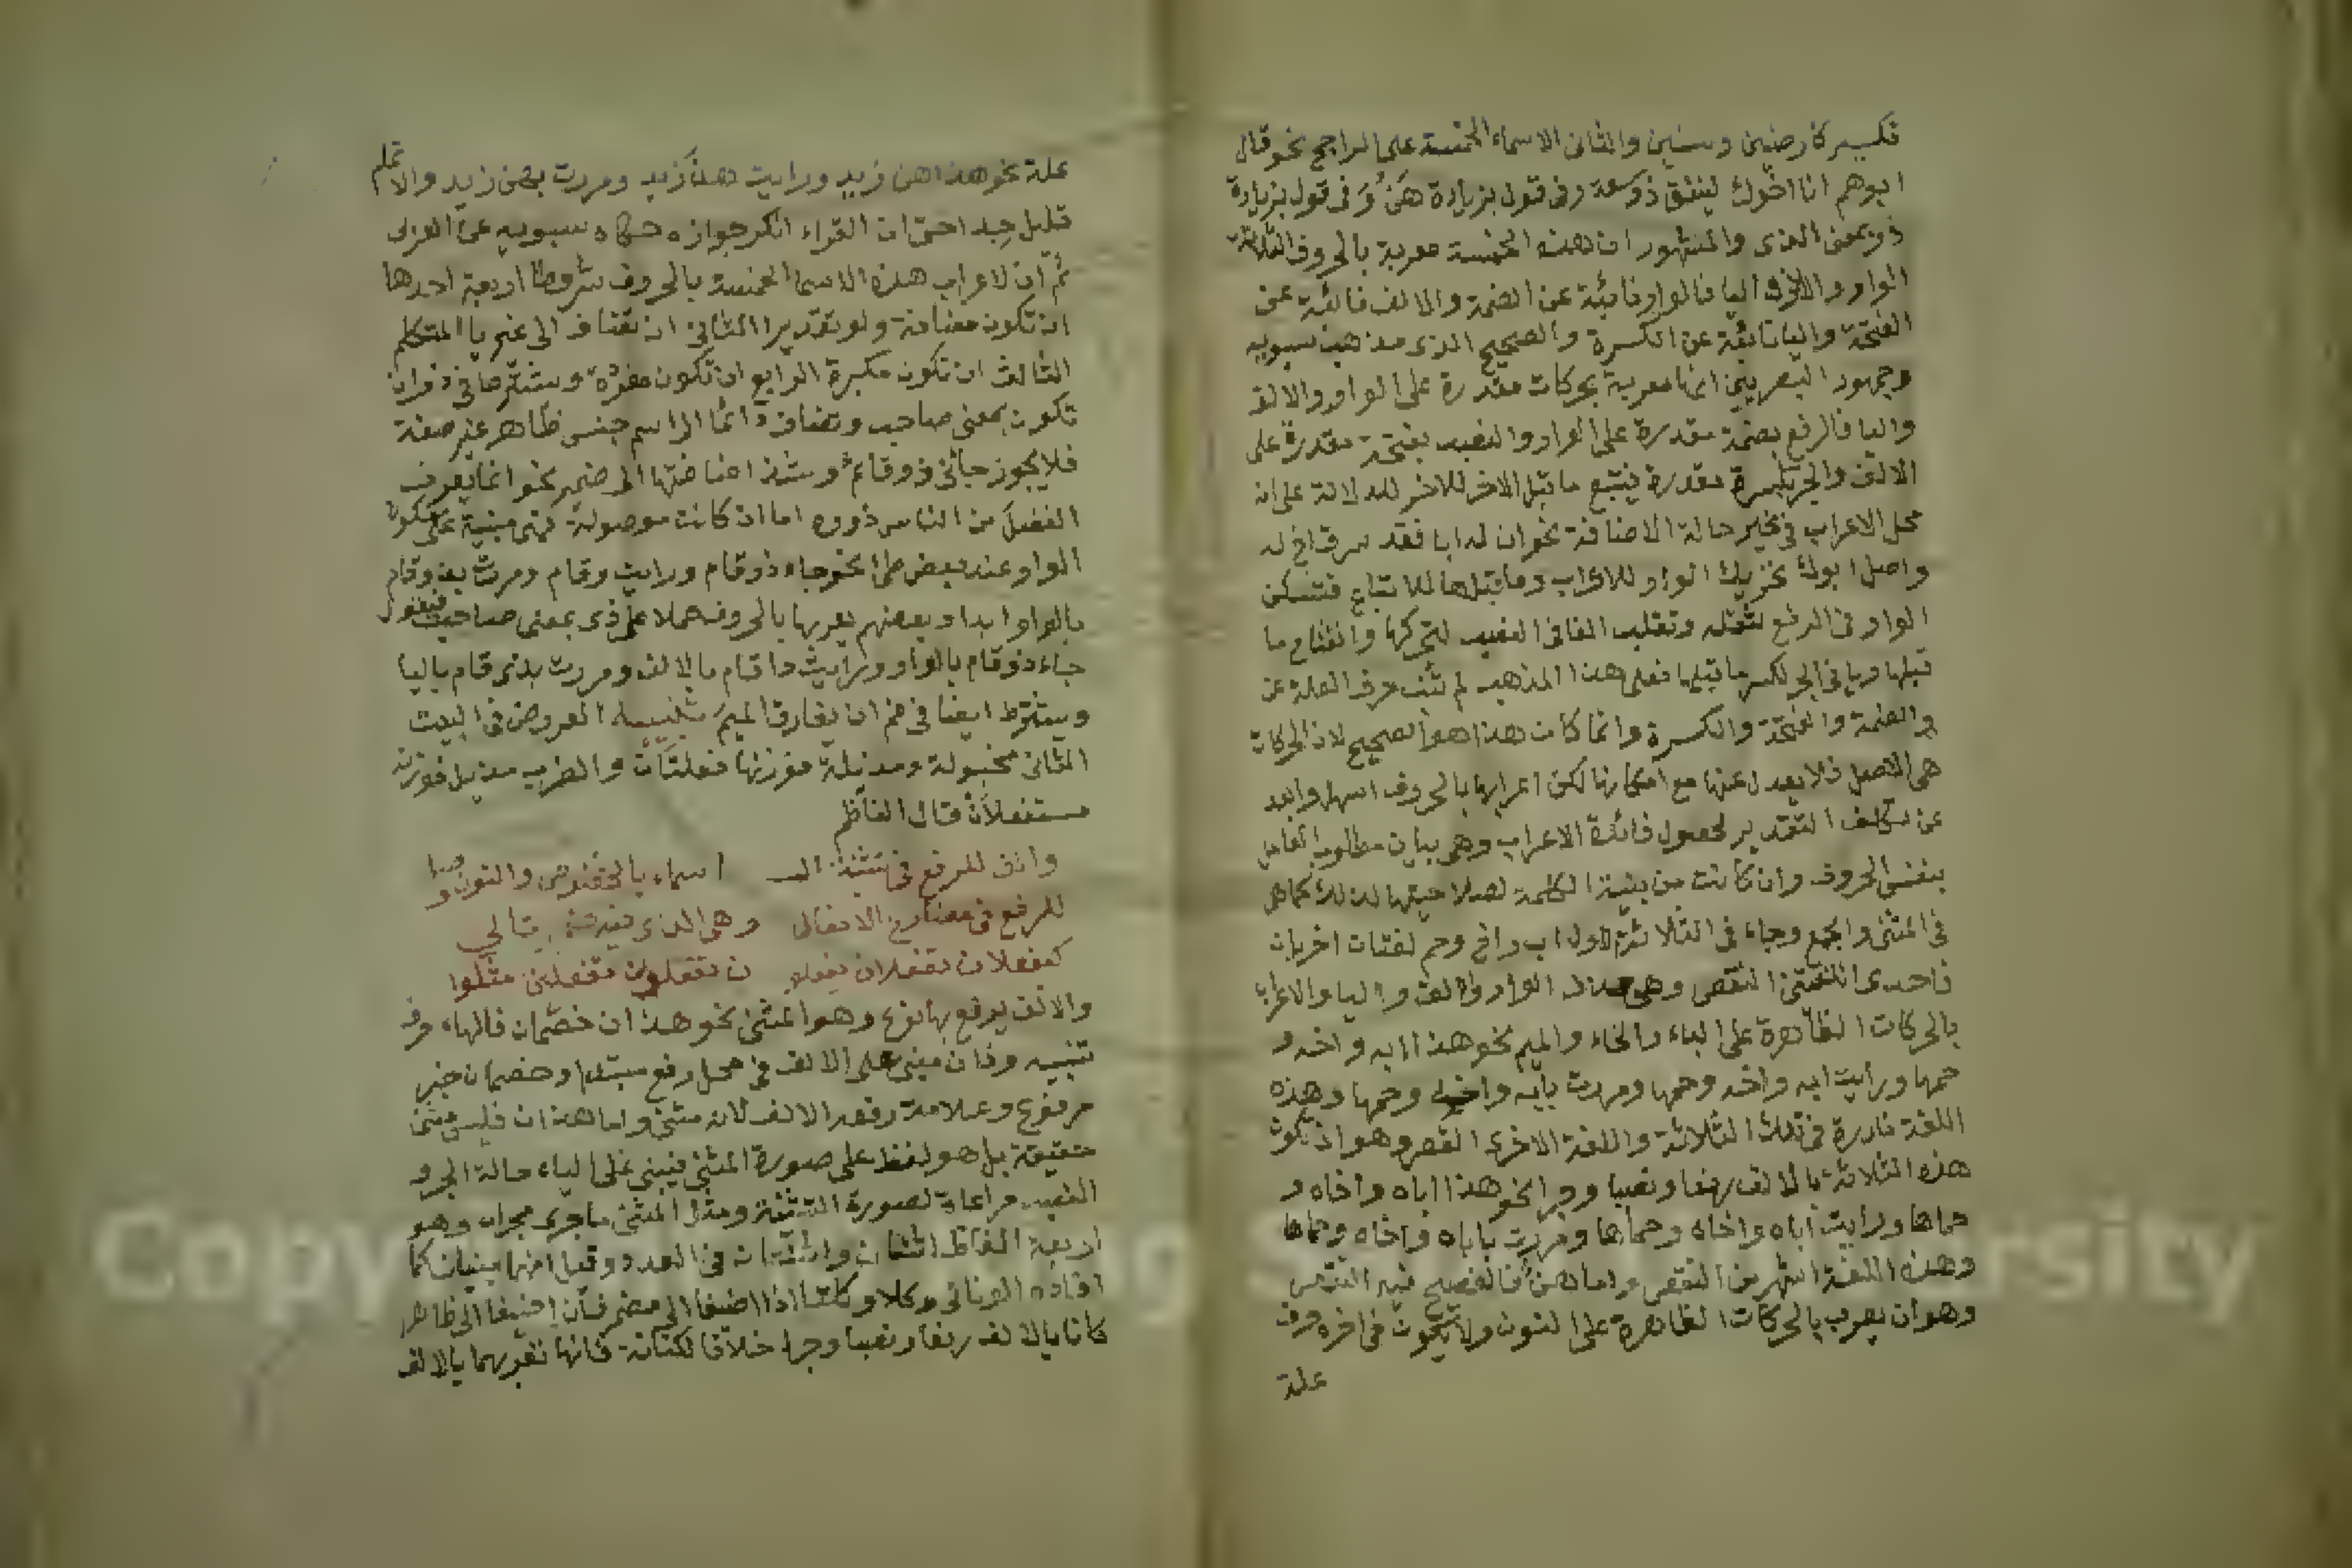 تكسير كارضين وسنين والثانى الاسماء الخمسة على الراجح نحو قال
ابوهم انا اخوك لينفق ذوسعة وفى قول بزيادة هَنُ وَ فى قول بزيادة
ذو بمعنى الذى والمشهور ان هذه الخمسة معربة بالحروف الثلاثة
الواو والالف واليا فالواو نائبة عن الضمة والالف نائبة عن
الفتحة واليا نائبة عن الكسرة والصحيح الذى مذهب سيبويه
وجمهور البصريين انها معربة بحركات مقدرة على الواو والالف
واليا فالرفع بضمة مقدرة على الواو والنصب بفتحة مقدرة على
الالف والجر بكسرة مقدرة فيتبع ما قبل الاخر للاخر للدلالة على ان
محل الاعراب فى غير حالة الاضافة نحو ان له ابا فقد سرق اخ له
واصل ابوك بتحريك الواو للاعراب وما قبلها للاتباع فتسكن
الواو فى الرفع لثقله وتقلب الفا فى النصب لتحركها وانفتاح ما
قبلها ويا فى الجر لكسر ما قبلها فعلى هذا المذهب لم تنب حرف العلة عن
والضمة والفتحة والكسرة وانما كان هذا هو الصحيح لان الحركات
هى الاصل فلا يعدل عنها مع امكانها لكن اعرابها بالحروف اسهل وابعد
عن تكلف التقدير لحصول فائدة الاعراب وهى بيان مطلوب العامل
بنفس الحروف وان كانت من بنية الكلمة لصلاحيتها لذلك كما هى
فى المثنى والجمع وجاء فى الثلاثة الاول اب واخ وحم لغتات اخريان
فاحدى اللغتين النقص وهى حذف الواو والالف واليا والاعراب
بالحركات الظاهرة على الباء والخاء والميم نحو هذا ابه واخه و
حمها ورايت ابه واخه وحمها ومررت بابه واخه وحمها وهذه
اللغة نادرة فى تلك الثلاثة واللغة الاخرى القصر وهو ان تكون
هذه الثلاثة بالالف رفعا ونصبا وجرا نحو هذا اباه واخاه و
حماها ورايت اباه واخاه وحماها ومررت باباه واخاه وحماها
وهذه اللغة اشهر من النقص واما هن فالفصيح فيه النقص
وهو ان يعرب بالحركات الظاهرة على النون ولا تكون فى اخره حرف
علة
علة نحو هذا هن زيد ورايت هن زيد ومررت بهن زيد والاتمام
قليل جدا حتى ان الفراء انكر جوازه حكاه سيبويه عن العرب
ثم ان لاعراب هذه الاسما الخمسة بالحروف شروطا اربعة احدها
ان تكون مضافة ولو تقديرا الثانى ان تضاف الى غير يا المتكلم
الثالث ان تكون مكبرة الرابع ان تكون مفردة ويشترط فى ذو ان
تكون بمعنى صاحب وتضاف دائما الى اسم جنس ظاهر غير صفة
فلا يجوز جائى ذو قائم وشذ اضافتها الى ضمير نحو انما يعرف
الفضل من الناس ذووه اما ان كانت موصولة فهى مبنية على سكون
الواو عند بعض طى نحو جاء ذو قام ورايت ذو قام ومررت بذو قام
بالواو ابدا وبعضهم يعربها بالحروف حملا على ذى بمعنى صاحب فيقول
جاء ذو قام بالواو ورايت ذا قام بالالف ومررت بذى قام باليا
ويشترط ايضا فى فم ان يفارق الميم تنبيه العروض فى البيت
الثانى مخبولة ومذيلة فوزنها فعلتان والضرب مذيل فوزنه
مستفعلان قال الناظم
وانق للرفع فى تثنية الـ اسماء بالخفض والنون
للرفع فى مضارع الافعال وهى الذى
كيفعلان تفعلان يفعلو ن تفعلون تفعلين مثلوا
والالف يرفع بها نوع وهو المثنى نحو هذان خصمان فالهاء حرف
تنبيه وذان مبنى على الالف فى محل رفع مبتدا وخصمان خبر
مرفوع وعلامة رفعه الالف لانه مثنى واما هذان فليس مثنى
حقيقة بل هو لفظ على صورة المثنى فيبنى على الياء حالة الجر و
النصب مراعاة لصورة التثنية ومثل المثنى ما جرى مجراه وهو
اربعة الفاظ اثنان واثنتان فى العدد وقيل انهما مبنيان كما
افاده وكلا وكلتا اذا اضيفا الى مضمر فان اضيفا الى ظاهر
كانا بالالف رفعا ونصبا وجرا خلافا لكنانة فانها تعربهما بالالف